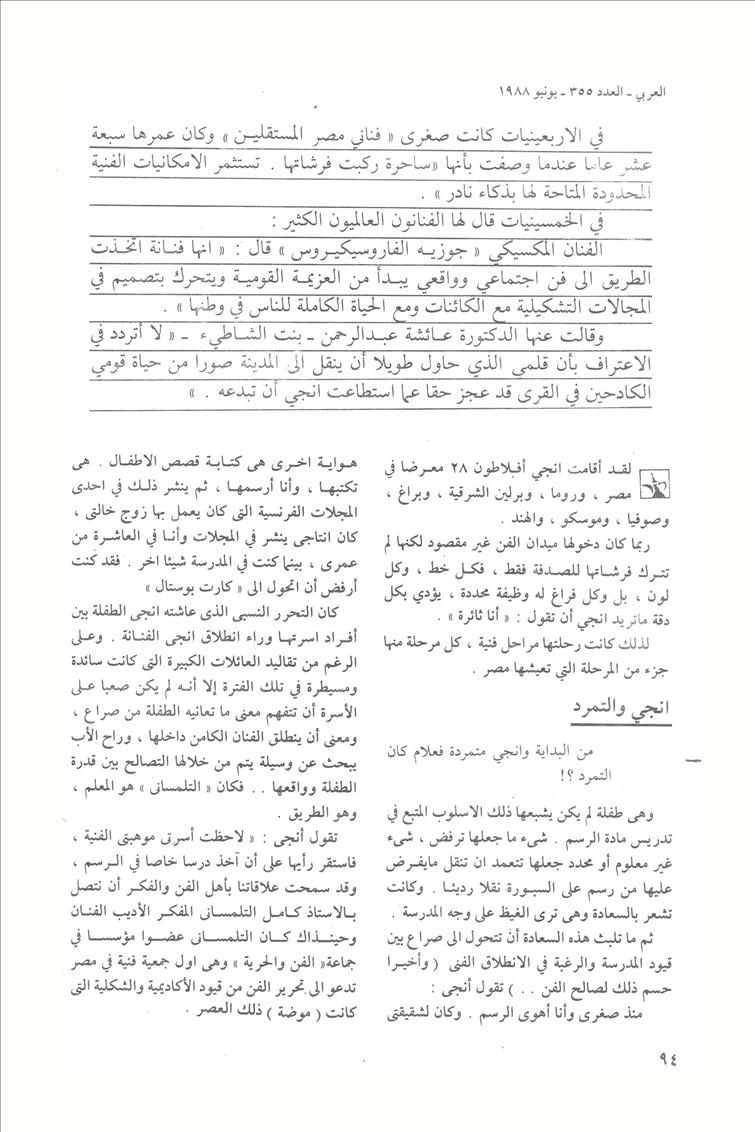 العربي ـ العدد ٣٥٥ ـ يونيو ١٩٨٨
في الاربعينيات كانت صغرى « فناني مصر المستقلين » وكان عمرها سبعة
عشر عاما عندما وصفت بأنها «ساحرة ركبت فرشاتها . تستثمر الامكانيات الفنية
المحدودة المتاحة لها بذكاء نادر » .
في الخمسينيات قال لها الفنانون العالميون الكثير :
الفنان المكسيكي « جوزيه الفاروسيكيروس » قال : « انها فنانة اتخذت
الطريق الى فن اجتماعي وواقعي يبدأ من العزيمة القومية ويتحرك بتصميم في
المجالات التشكيلية مع الكائنات ومع الحياة الكاملة للناس في وطنها » .
وقالت عنها الدكتورة عائشة عبدالرحمن ـ بنت الشاطيء ـ « لا أتردد في
الاعتراف بأن قلمي الذي حاول طويلا أن ينقل الى المدينة صورا من حياة قومي
الكادحين في القرى قد عجز حقا عما استطاعت انجي أن تبدعه . »
لقد أقامت انجي أفلاطون ٢٨ معرضا في
مصر ، وروما ، وبرلين الشرقية ، وبراغ ،
وصوفيا ، وموسكو ، والهند .
ربما كان دخولها ميدان الفن غير مقصود لكنها لم
تترك فرشاتها للصدفة فقط ، فكل خط ، وكل
لون ، بل وكل فراغ له وظيفة محددة ، يؤدي بكل
دقة ماتريد انجي أن تقول : « أنا ثائرة » .
لذلك كانت رحلتها مراحل فنية ، كل مرحلة منها
جزء من المرحلة التي تعيشها مصر .
انجي والتمرد
من البداية وانجي متمردة فعلام كان
التمرد ؟!
وهى طفلة لم يكن يشبعها ذلك الاسلوب المتبع في
تدريس مادة الرسم . شىء ما جعلها ترفض ، شىء
غير معلوم أو محدد جعلها تتعمد ان تنقل مايفرض
عليها من رسم على السبورة نقلا رديئا . وكانت
تشعر بالسعادة وهى ترى الغيظ على وجه المدرسة .
ثم ما تلبث هذه السعادة أن تتحول الى صراع بين
قيود المدرسة والرغبة في الانطلاق الفنى ( وأخيرا
حسم ذلك لصالح الفن . . ) تقول أنجى :
منذ صغرى وأنا أهوى الرسم . وكان لشقيقتى
هواية اخرى هى كتابة قصص الاطفال . هى
تكتبها ، وأنا أرسمها ، ثم ينشر ذلك في احدى
المجلات الفرنسية التى كان يعمل بها زوج خالتى ،
كان انتاجى ينشر في المجلات وأنا في العاشرة من
عمرى ، بينما كنت في المدرسة شيئا اخر . فقد كنت
أرفض أن اتحول الى « كارت بوستال »
كان التحرر النسبى الذى عاشته انجى الطفلة بين
أفراد اسرتها وراء انطلاق انجى الفنانة . وعلى
الرغم من تقاليد العائلات الكبيرة التى كانت سائدة
ومسيطرة في تلك الفترة إلا أنه لم يكن صعبا على
الأسرة أن تتفهم معنى ما تعانيه الطفلة من صراع ،
ومعنى أن ينطلق الفنان الكامن داخلها ، وراح الأب
يبحث عن وسيلة يتم من خلالها التصالح بين قدرة
الطفلة وواقعها . . فكان « التلمسانى » هو المعلم ،
وهو الطريق .
تقول أنجى : « لاحظت أسرتى موهبتى الفنية ،
فاستقر رأيها على أن آخذ درسا خاصا في الرسم ،
وقد سمحت علاقاتنا بأهل الفن والفكر أن نتصل
بالاستاذ كامل التلمسانى المفكر الأديب الفنان
وحينذاك كان التلمسانى عضوا مؤسسا في
جماعة« الفن والحرية » وهى اول جمعية فنية في مصر
تدعو الى تحرير الفن من قيود الأكاديمية والشكلية التى
كانت ( موضة ) ذلك العصر .
٩٤